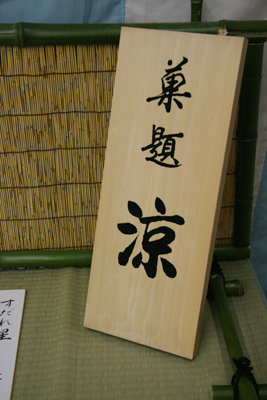 菓題
涼
すだれ星